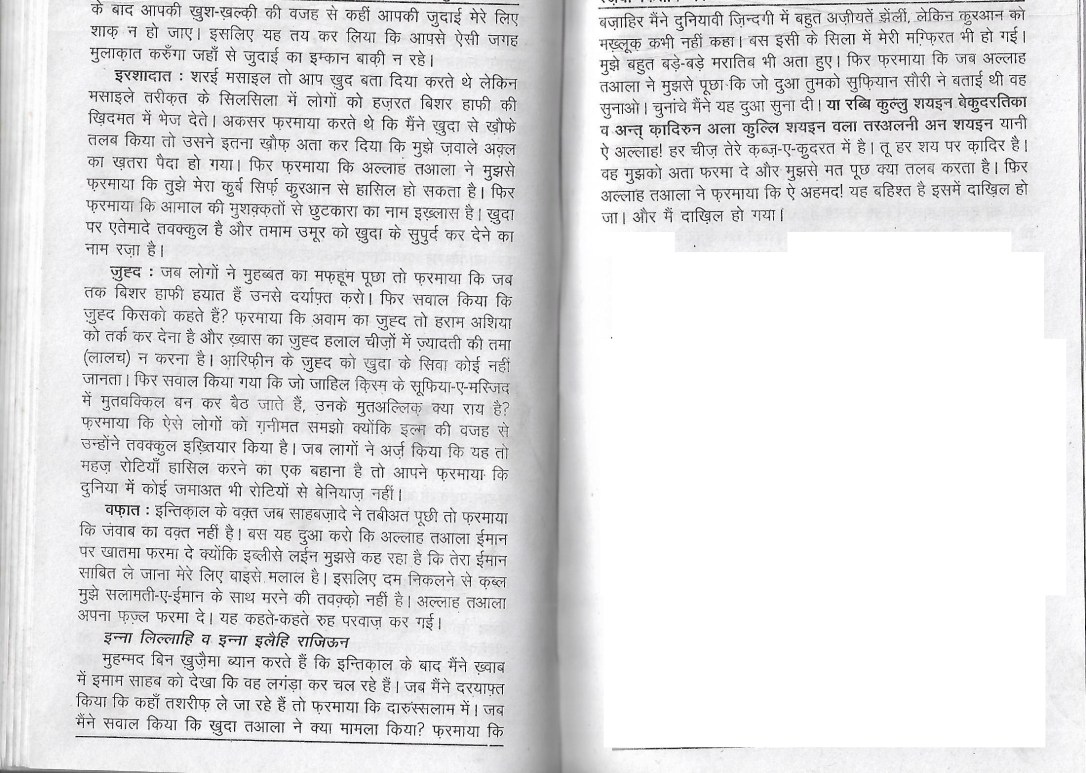 के बाद आपकी ख़ुश-ख़ल्क़ी की वजह से कहीं आपकी जुदाई मेरे लिए
शाक़ न हो जाए। इसलिए यह तय कर लिया कि आपसे ऐसी जगह
मुलाक़ात करुँगा जहाँ से जुदाई का इम्कान बाक़ी न रहे।
इरशादात : शरई मसाइल तो आप ख़ुद बता दिया करते थे लेकिन
मसाइले तरीक़त के सिलसिला में लोगों को हज़रत बिशर हाफी की
ख़िदमत में भेज देते। अकसर फ़रमाया करते थे कि मैंने ख़ुदा से ख़ौफे
तलब किया तो उसने इतना ख़ौफ़ अता कर दिया कि मुझे ज़वाले अक़्ल
का ख़तरा पैदा हो गया। फिर फ़रमाया कि अल्लाह तआला ने मुझसे
फ़रमाया कि तुझे मेरा कुर्ब सिर्फ़ कुरआन से हासिल हो सकता है। फिर
फ़रमाया कि आमाल की मुशक़्क़तों से छुटकारा का नाम इख़्लास है। ख़ुदा
पर एतेमादे तवक्कुल है और तमाम उमूर को ख़ुदा के सुपुर्द कर देने का
नाम रज़ा है।
ज़ुह्द : जब लोगों ने मुहब्बत का मफ़हूम पूछा तो फ़रमाया कि जब
तक बिशर हाफी हयात हैं उनसे दर्याफ़्त करो। फिर सवाल किया कि
ज़ुह्द किसको कहते हैं? फ़रमाया कि अवाम का ज़ुह्द तो हराम अशिया
को तर्क कर देना है और ख़्वास का ज़ुह्द हलाल चीज़ों में ज़्यादती की तमा
(लालच) न करना है। आ़रिफ़ीन के ज़ुह्द को ख़ुदा के सिवा कोई नहीं
जानता। फिर सवाल किया गया कि जो जाहिल क़िस्म के सूफिया-ए-मस्जिद
में मुतवक्किल बन कर बैठ जाते हैं, उनके मुतअल्लिक़ क्या राय है?
फ़रमाया कि ऐसे लोगों को ग़नीमत समझो क्योंकि इल्म की वजह से
उन्होंने तवक्कुल इख़्तियार किया है। जब लागों ने अर्ज़ किया कि यह तो
महज़ रोटियाँ हासिल करने का एक बहाना है तो आपने फ़रमाया कि
दुनिया में कोई जमाअत भी रोटियों से बेनियाज़ नहीं।
वफ़ात : इन्तिक़ाल के वक़्त जब साहबज़ादे ने तबीअत पूछी तो फ़रमाया
कि जंवाब का वक़्त नहीं है। बस यह दुआ करो कि अल्लाह तआला ईमान
पर खातमा फरमा दे क्योंकि इब्लीसे लईन मुझसे कह रहा है कि तेरा ईमान
साबित ले जाना मेरे लिए बाइसे मलाल है। इसलिए दम निकलने से क़ब्ल
मुझे सलामती-ए-ईमान के साथ मरने की तवक़्क़ो नहीं है। अल्लाह तआला
अपना फ़ज़्ल फरमा दे। यह कहते-कहते रुह परवाज़ कर गई।
इन्ना लिल्लाहि व इन्ना इलैहि राजिऊन
मुहम्मद बिन ख़ुज़ैमा ब्यान करते हैं कि इन्तिक़ाल के बाद मैंने ख़्वाब
में इमाम साहब को देखा कि वह लगंड़ा कर चल रहे हैं। जब मैंने दरयाफ़्त
किया कि कहाँ तशरीफ़ ले जा रहे हैं तो फ़रमाया कि दारुस्सलाम में। जब
मैंने सवाल किया कि ख़ुदा तआला ने क्या मामला किया? फ़रमाया कि
बज़ाहिर मैंने दुनियावी ज़िन्दगी में बहुत अज़ीयतें झेंलीं, लेकिन कुरआन को
मख़्लूक़ कभी नहीं कहा। बस इसी के सिला में मेरी मग़्फ़िरत भी हो गई।
मुझे बहुत बड़े-बड़े मरातिब भी अता हुए। फिर फ़रमाया कि जब अल्लाह
तआला ने मुझसे पूछा कि जो दुआ तुमको सुफ़ियान सौरी ने बताई थी वह
सुनाओ। चुनांचे मैंने यह दुआ सुना दी। या रब्बि कुल्लु शयइन बेकुदरतिका
व अन्त् क़ादिरुन अला कुल्लि शयइन वला तरअलनी अन शयइन यानी
ऐ अल्लाह! हर चीज़ तेरे कब्ज़-ए-कुदरत में है। तू हर शय पर क़ादिर है।
वह मुझको अता फरमा दे और मुझसे मत पूछ क्या तलब करता है। फिर
अल्लाह तआला ने फ़रमाया कि ऐ अहमद! यह बहिश्त है इसमें दाख़िल हो
जा। और मैं दाख़िल हो गया।